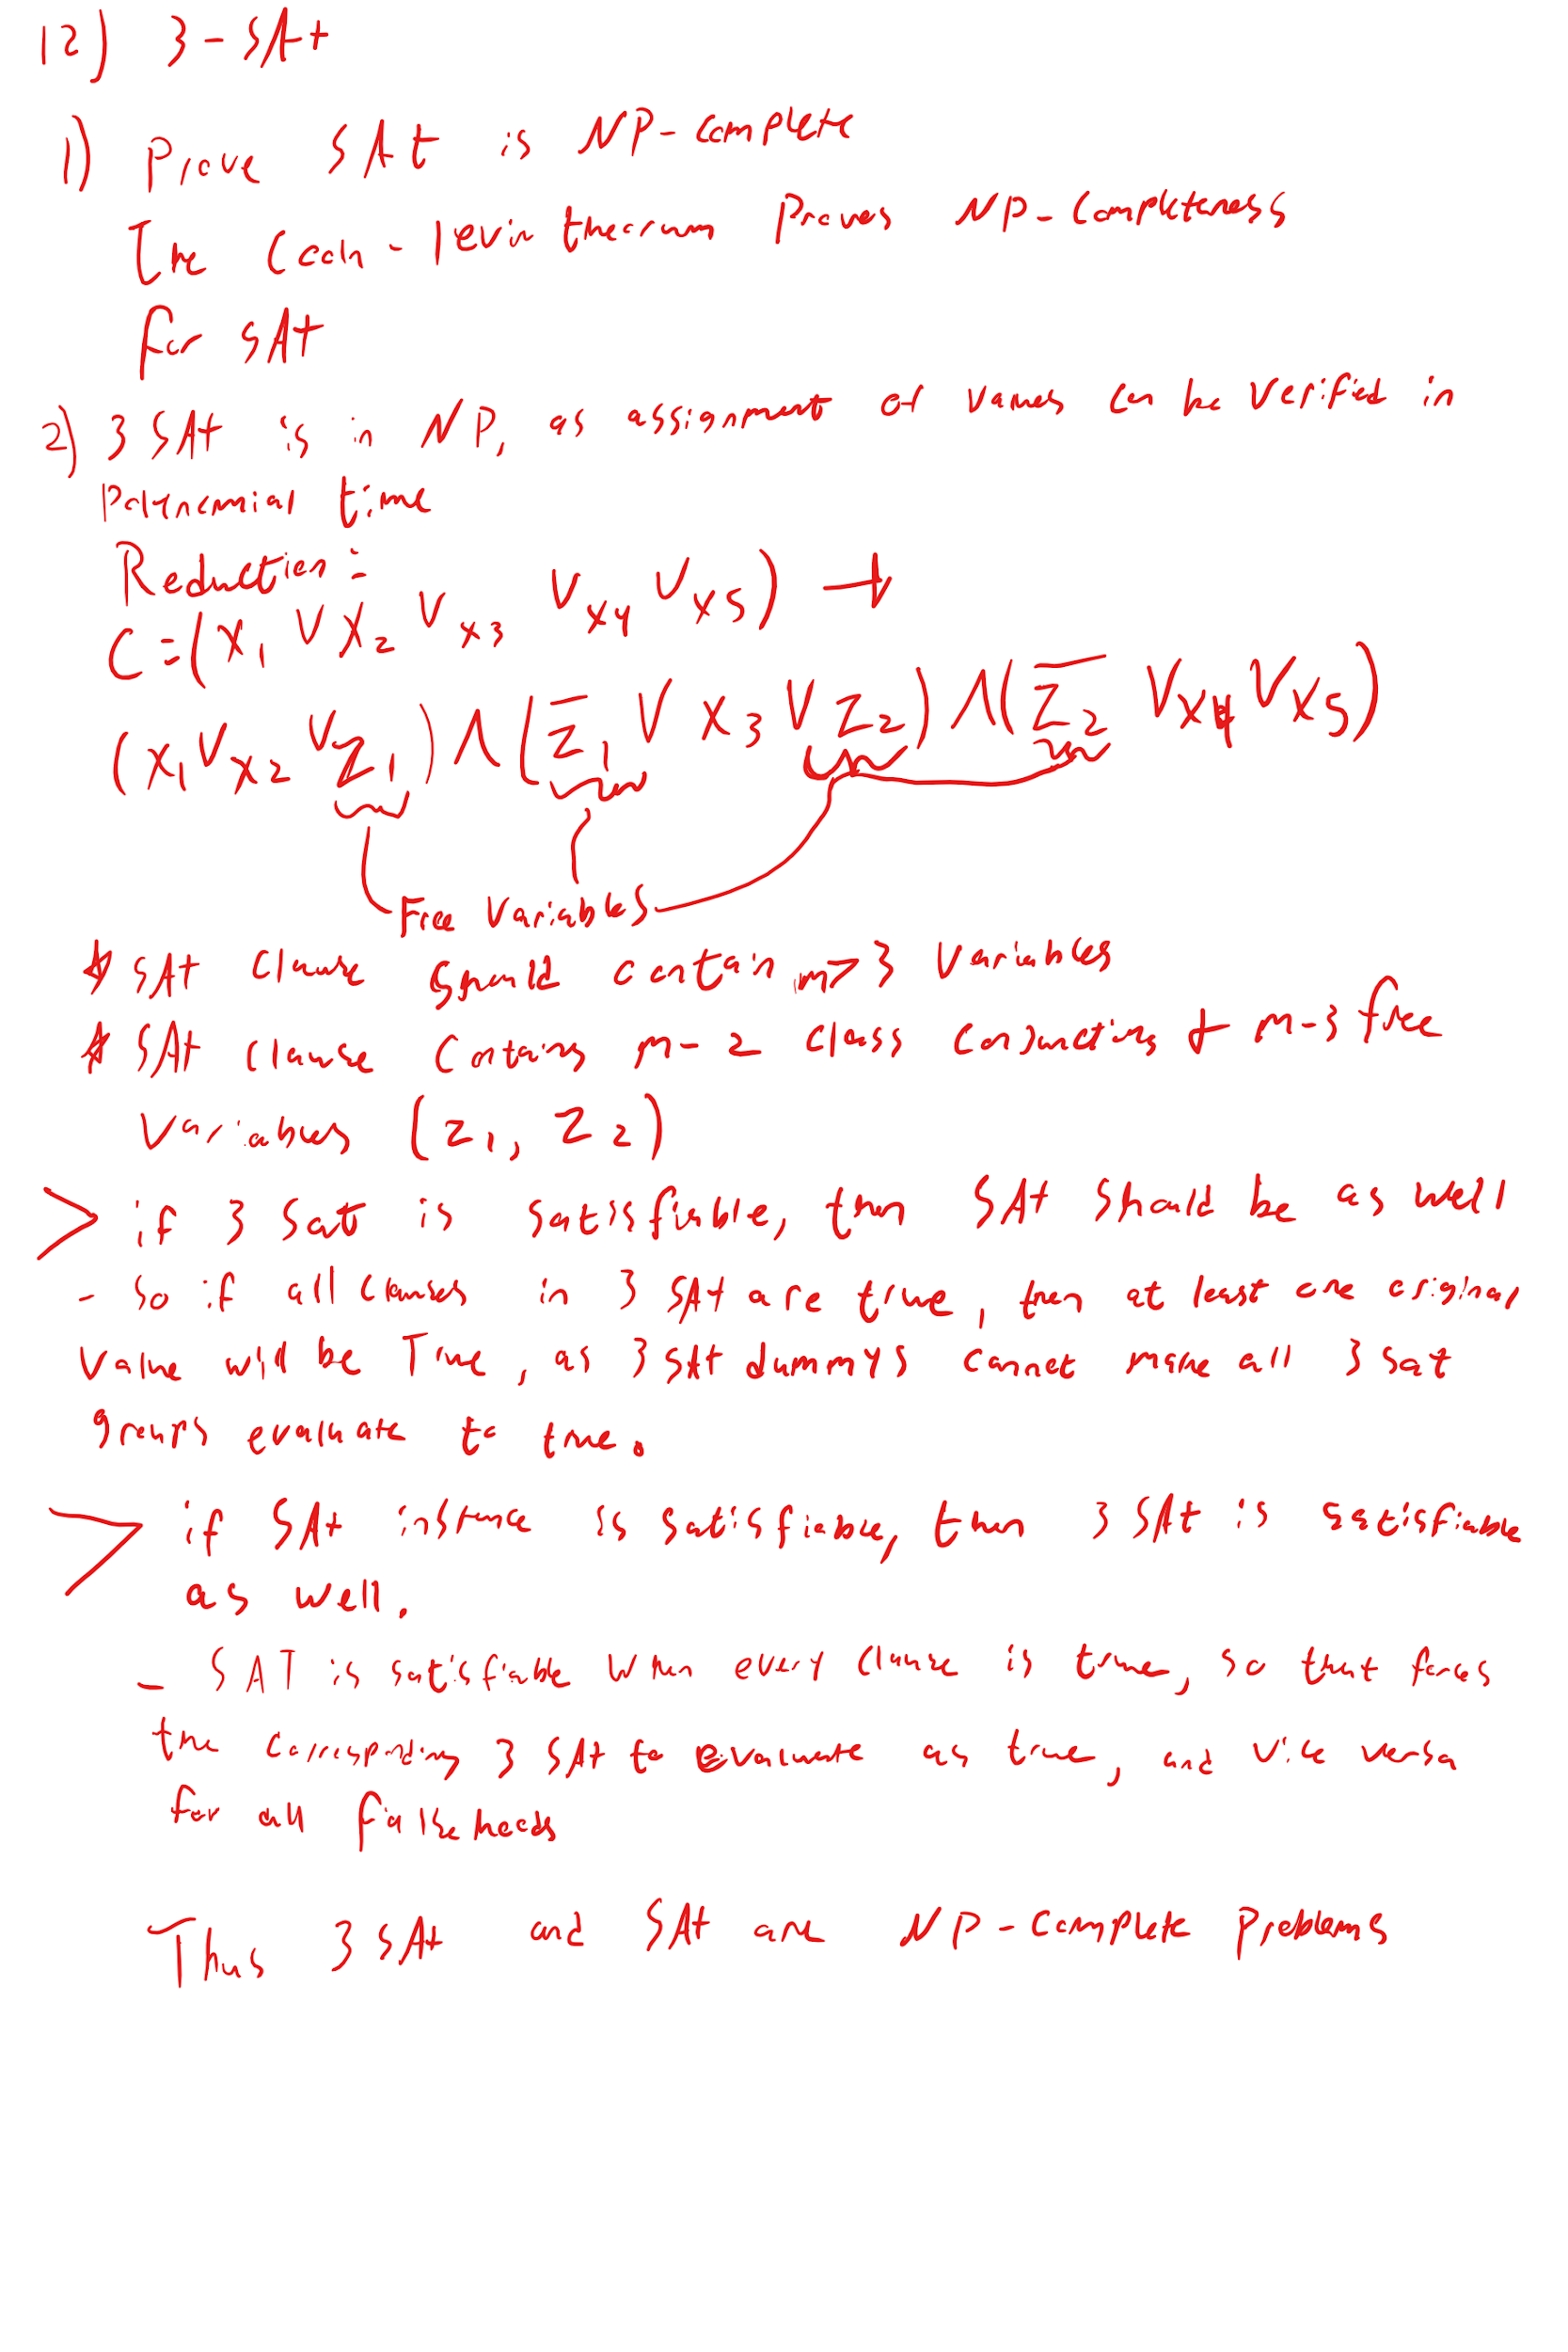 12) 3-SAt
1) Prove SAt is NP-complete
The Cook-levin theorum Proves NP-Completeness
for SAt
2) 3 SAt is in NP, as assignment of values can be verified in
Polynomial time
Reduction:
C=(x₁ V x₂ V x₃ V x₄ V x₅) →
(x₁ V x₂ V z₁) Λ (z̅₁ V x₃ V z₂) Λ (z̅₂ V x₄ V x₅)
Free Variables
* SAt clause should contain m>3 variables
* SAt clause contains m-2 class conjunctions + m-3 free
Variables (z₁, z₂)
> if 3 Sat is satisfiable, then SAt should be as well
- So if all clauses in 3 SAt are true, then at least one original
value will be True, as 3 SAt dummys cannot make all 3 sat
groups evaluate to true.
> if SAt instance is satisfiable, then 3 SAt is satisfiable
as well.
- SAT is satisfiable when every clause is true, so that forces
the corresponding 3 SAt to evaluate as true, and vice versa
for all falsehoods
Thus 3 SAt and SAt are NP-complete problems